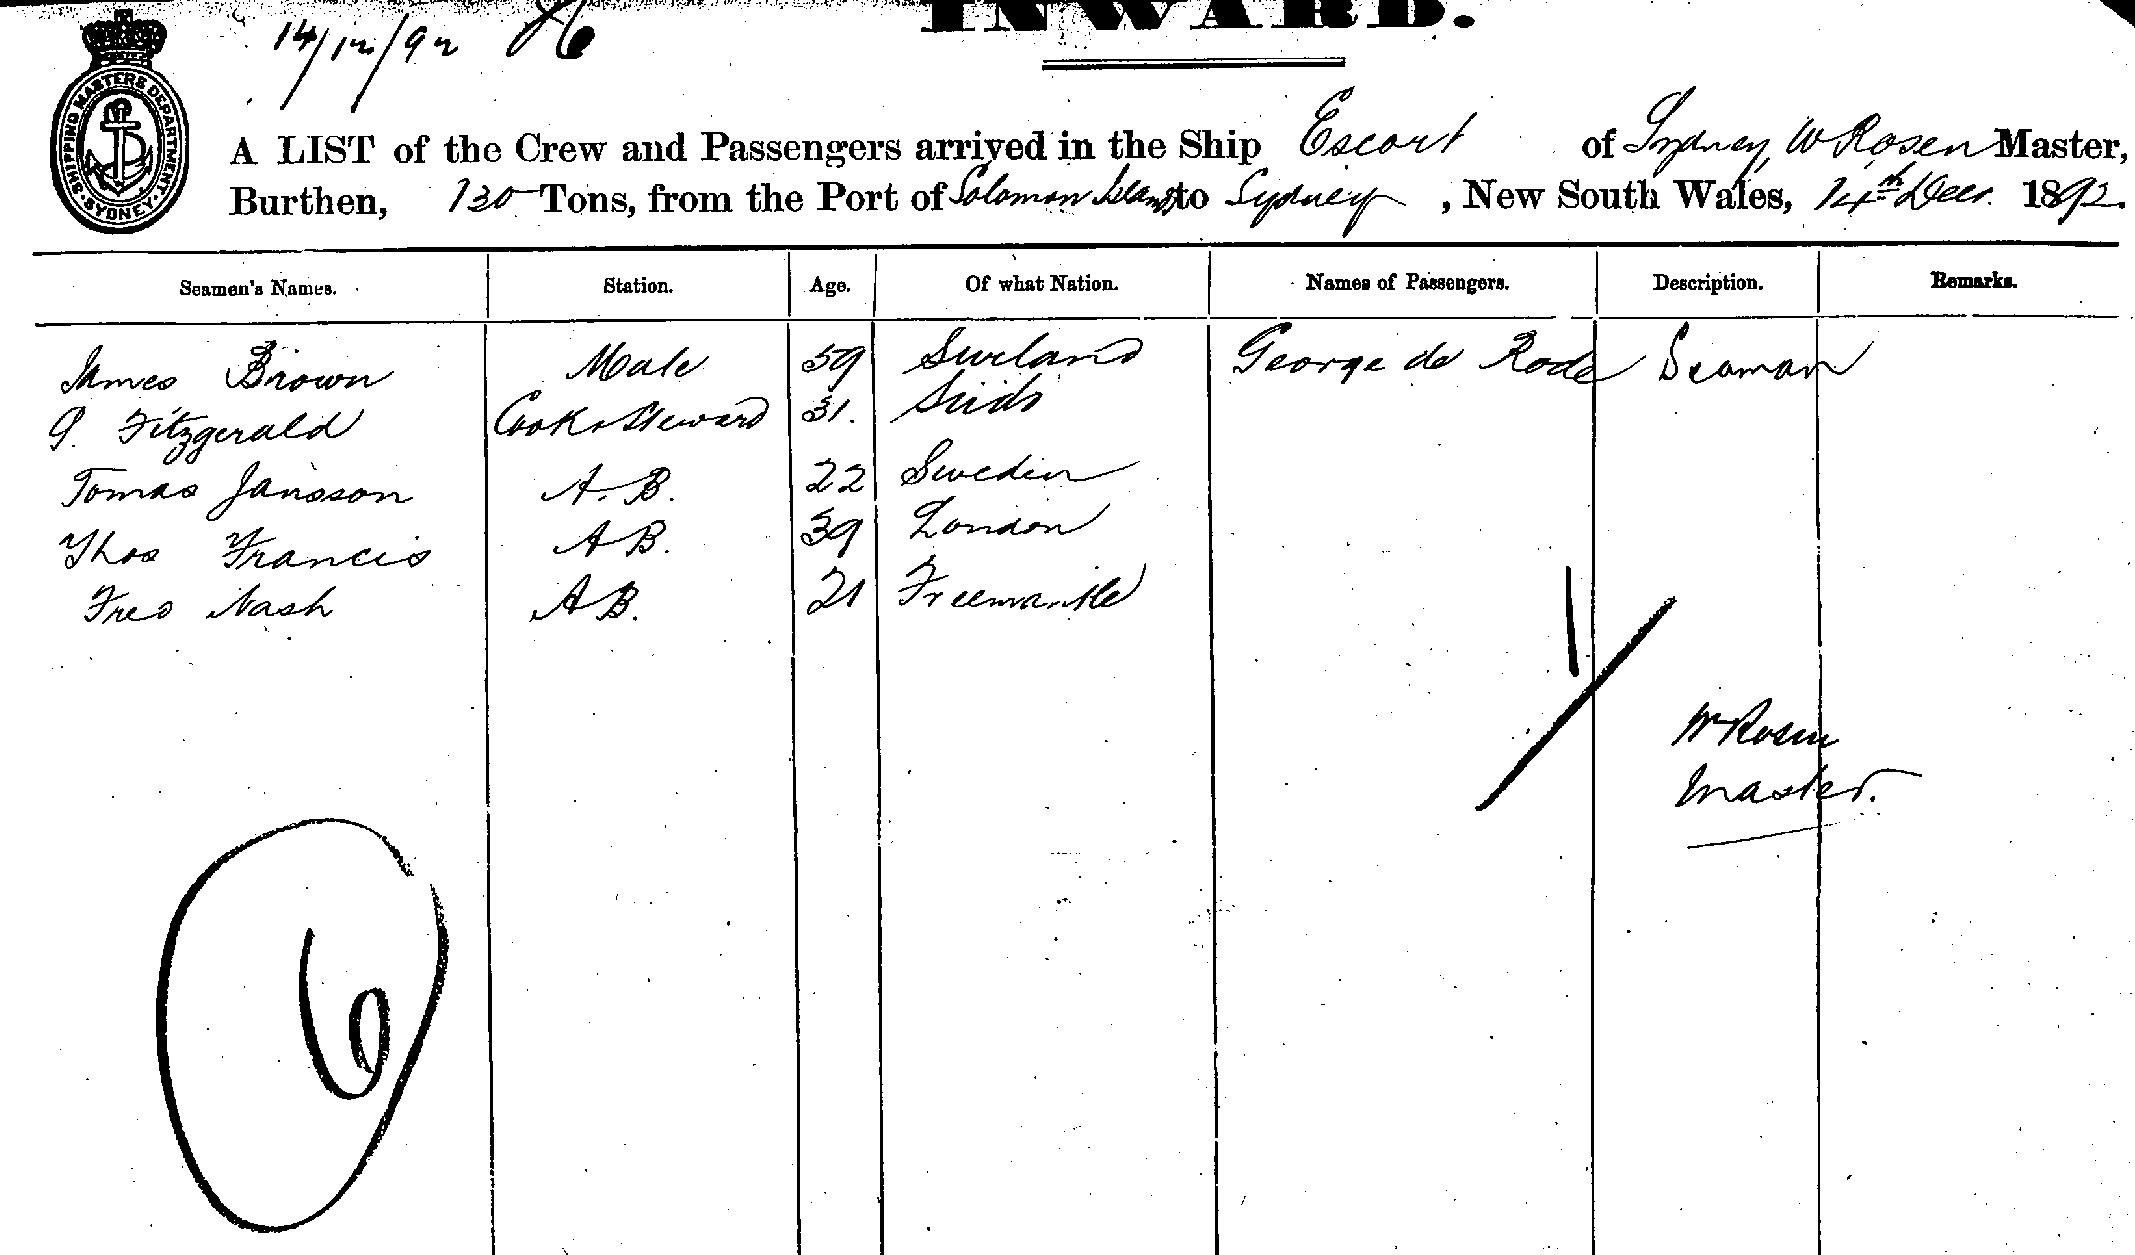 INWARD.
14/12/92 86
SHIPPING MASTERS DEPARTMENT
SYDNEY
A LIST of the Crew and Passengers arrived in the Ship Escort of Sydney, W Rosen Master,
Burthen, 130 Tons, from the Port of Solomon Islands to Sydney, New South Wales, 14th Decr. 1892.
Seamen's Names. Station. Age. Of what Nation. Names of Passengers. Description. Remarks.
James Brown Mate 59 George de Rode Seaman
P. Fitzgerald Cook & Steward 31.
Tomas Jansson A.B. 22 Sweden
Thos Francis AB. 39 London
Fred Nash AB. 21 Freemantle
1
W Rosen
Master.
6